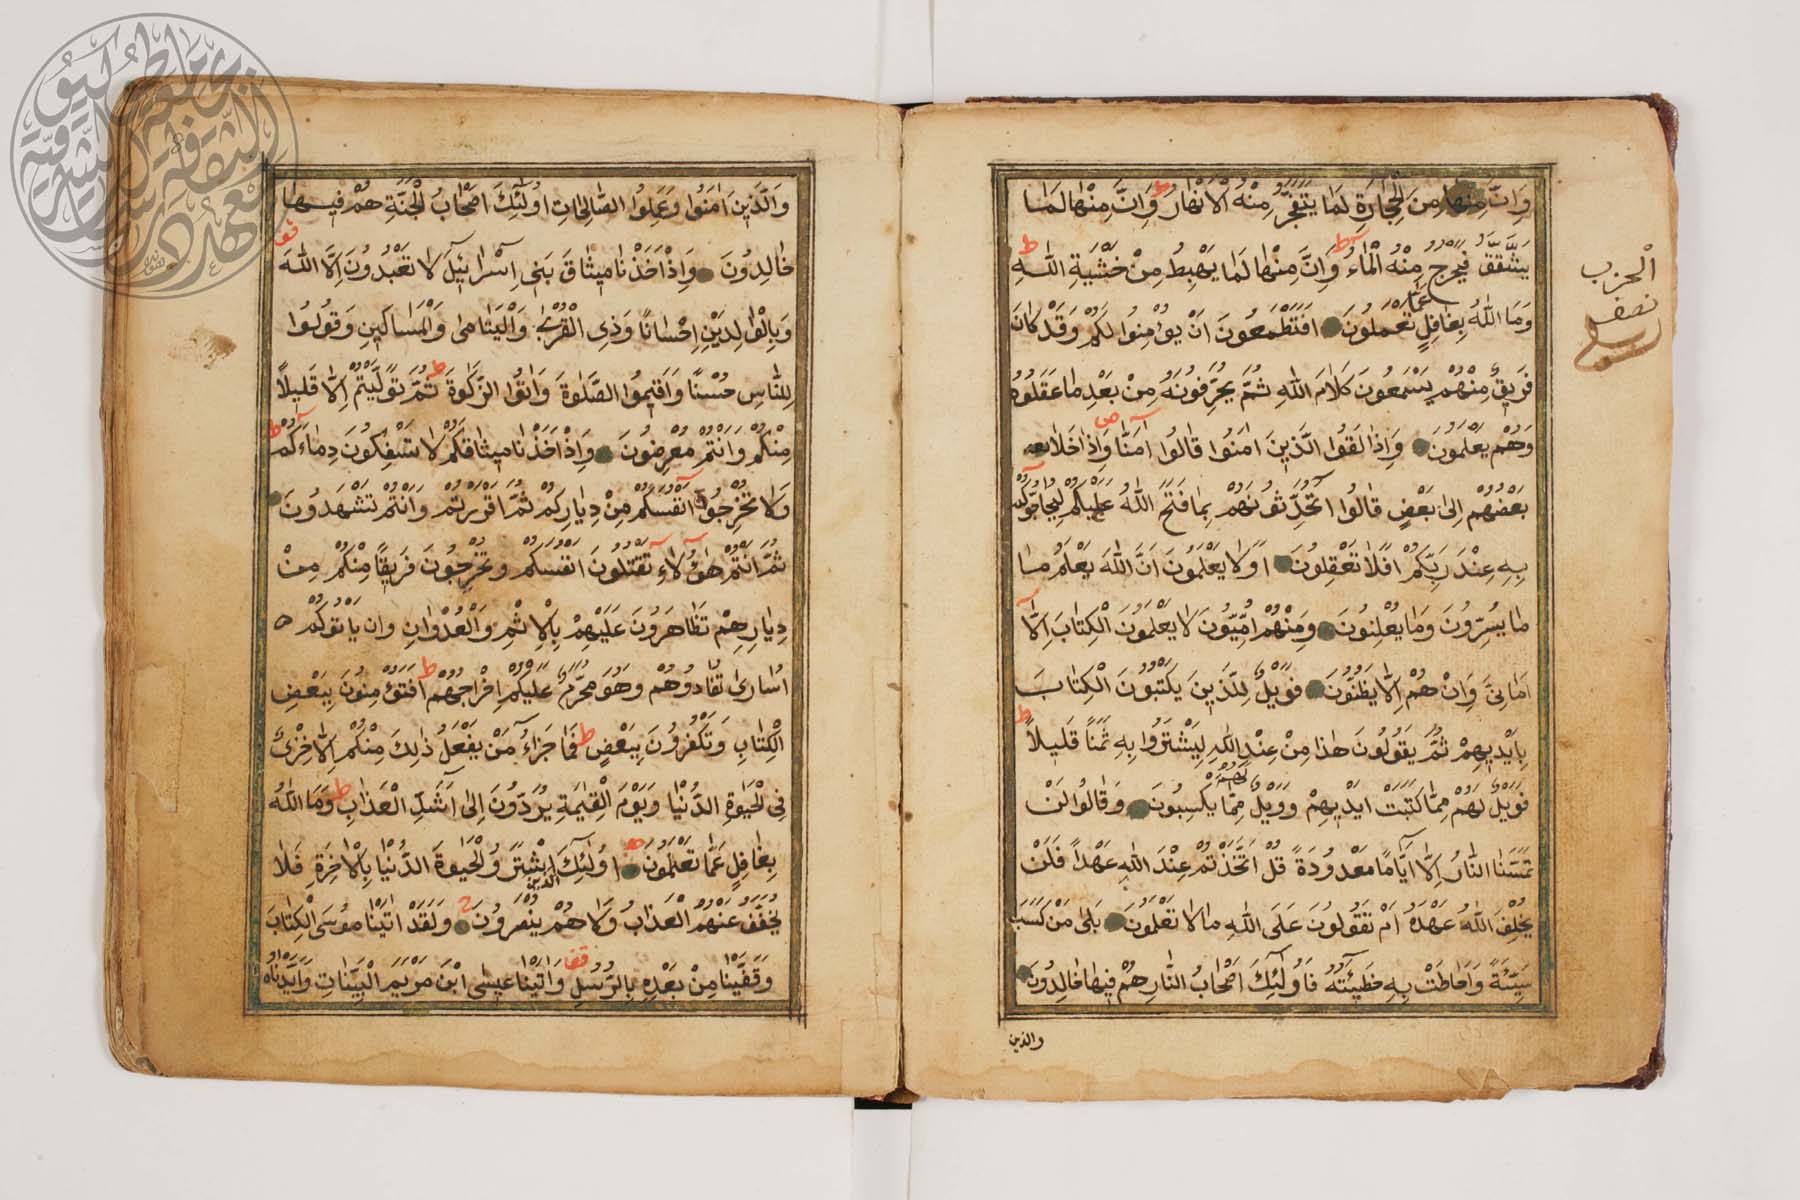 وَاِنَّ مِنْهَا مِنَ الْحِجَارَةِ لَمَا يَتَفَجَّرُ مِنْهُ الْاَنْهَارُ ط وَاِنَّ مِنْهَا لَمَا
يَشَّقَّقُ فَيَخْرُجُ مِنْهُ الْمَاءُ ط وَاِنَّ مِنْهَا لَمَا يَهْبِطُ مِنْ خَشْيَةِ اللهِ ط
وَمَا اللهُ بِغَافِلٍ عَمَّا تَعْمَلُونَ اَفَتَطْمَعُونَ اَنْ يُؤْمِنُوا لَكُمْ وَقَدْ كَانَ
فَرِيقٌ مِنْهُمْ يَسْمَعُونَ كَلَامَ اللهِ ثُمَّ يُحَرِّفُونَهُ مِنْ بَعْدِ مَا عَقَلُوهُ
وَهُمْ يَعْلَمُونَ وَاِذَا لَقُوا الَّذِينَ اٰمَنُوا قَالُوا اٰمَنَّا ص وَاِذَا خَلَا بعـ
بَعْضُهُمْ اِلٰى بَعْضٍ قَالُوا اَتُحَدِّثُونَهُمْ بِمَا فَتَحَ اللهُ عَلَيْكُمْ لِيُحَاجُّوكُمْ
بِهِ عِنْدَ رَبِّكُمْ اَفَلَا تَعْقِلُونَ اَوَلَا يَعْلَمُونَ اَنَّ اللهَ يَعْلَمُ مَا
مَا يُسِرُّونَ وَمَا يُعْلِنُونَ وَمِنْهُمْ اُمِّيُّونَ لَا يَعْلَمُونَ الْكِتَابَ اِلَّا
اَمَانِىَّ وَاِنْ هُمْ اِلَّا يَظُنُّونَ فَوَيْلٌ لِلَّذِينَ يَكْتُبُونَ الْكِتَابَ
بِاَيْدِيهِمْ ثُمَّ يَقُولُونَ هٰذَا مِنْ عِنْدِ اللهِ لِيَشْتَرُوا بِهِ ثَمَنًا قَلِيلًا ط
فَوَيْلٌ لَهُمْ مِمَّا كَتَبَتْ اَيْدِيهِمْ وَوَيْلٌ لَهُمْ مِمَّا يَكْسِبُونَ وَقَالُوا لَنْ
تَمَسَّنَا النَّارُ اِلَّا اَيَّامًا مَعْدُودَةً قُلْ اَتَّخَذْتُمْ عِنْدَ اللهِ عَهْدًا فَلَنْ
يُخْلِفَ اللهُ عَهْدَهُ اَمْ تَقُولُونَ عَلَى اللهِ مَا لَا تَعْلَمُونَ بَلٰى مَنْ كَسَبَ
سَيِّئَةً وَاَحَاطَتْ بِهِ خَطِيئَتُهُ فَاُولٰئِكَ اَصْحَابُ النَّارِ هُمْ فِيهَا خَالِدُونَ
والذين
الْحزب
نصف
وَالَّذِينَ اٰمَنُوا وَعَمِلُوا الصَّالِحَاتِ اُولٰئِكَ اَصْحَابُ الْجَنَّةِ هُمْ فِيهَا
خَالِدُونَ وَاِذْ اَخَذْنَا مِيثَاقَ بَنِى اِسْرَائِيلَ لَا تَعْبُدُونَ اِلَّا اللهَ قف
وَبِالْوَالِدَيْنِ اِحْسَانًا وَذِى الْقُرْبٰى وَالْيَتَامٰى وَالْمَسَاكِينِ وَقُولُوا
لِلنَّاسِ حُسْنًا وَاَقِيمُوا الصَّلٰوةَ وَاٰتُوا الزَّكٰوةَ ط ثُمَّ تَوَلَّيْتُمْ اِلَّا قَلِيلًا
مِنْكُمْ وَاَنْتُمْ مُعْرِضُونَ وَاِذْ اَخَذْنَا مِيثَاقَكُمْ لَا تَسْفِكُونَ دِمَاءَكُمْ ط
وَلَا تُخْرِجُونَ اَنْفُسَكُمْ مِنْ دِيَارِكُمْ ثُمَّ اَقْرَرْتُمْ وَاَنْتُمْ تَشْهَدُونَ
ثُمَّ اَنْتُمْ هٰؤُلَاءِ تَقْتُلُونَ اَنْفُسَكُمْ وَتُخْرِجُونَ فَرِيقًا مِنْكُمْ مِنْ
دِيَارِهِمْ تَظَاهَرُونَ عَلَيْهِمْ بِالْاِثْمِ وَالْعُدْوَانِ وَاِنْ يَاْتُوكُمْ
اُسَارٰى تُفَادُوهُمْ وَهُوَ مُحَرَّمٌ عَلَيْكُمْ اِخْرَاجُهُمْ ط اَفَتُؤْمِنُونَ بِبَعْضِ
الْكِتَابِ وَتَكْفُرُونَ بِبَعْضٍ ط فَمَا جَزَاءُ مَنْ يَفْعَلُ ذٰلِكَ مِنْكُمْ اِلَّا خِزْىٌ
فِى الْحَيٰوةِ الدُّنْيَا وَيَوْمَ الْقِيٰمَةِ يُرَدُّونَ اِلٰى اَشَدِّ الْعَذَابِ ط وَمَا اللهُ
بِغَافِلٍ عَمَّا تَعْلَمُونَ اُولٰئِكَ الَّذِينَ اشْتَرَوُا الْحَيٰوةَ الدُّنْيَا بِالْاٰخِرَةِ فَلَا
يُخَفَّفُ عَنْهُمُ الْعَذَابُ وَلَا هُمْ يُنْصَرُونَ وَلَقَدْ اٰتَيْنَا مُوسَى الْكِتَابَ
وَقَفَّيْنَا مِنْ بَعْدِهِ بِالرُّسُلِ قف وَاٰتَيْنَا عِيسٰى ابْنَ مَرْيَمَ الْبَيِّنَاتِ وَاَيَّدْنَاهُ